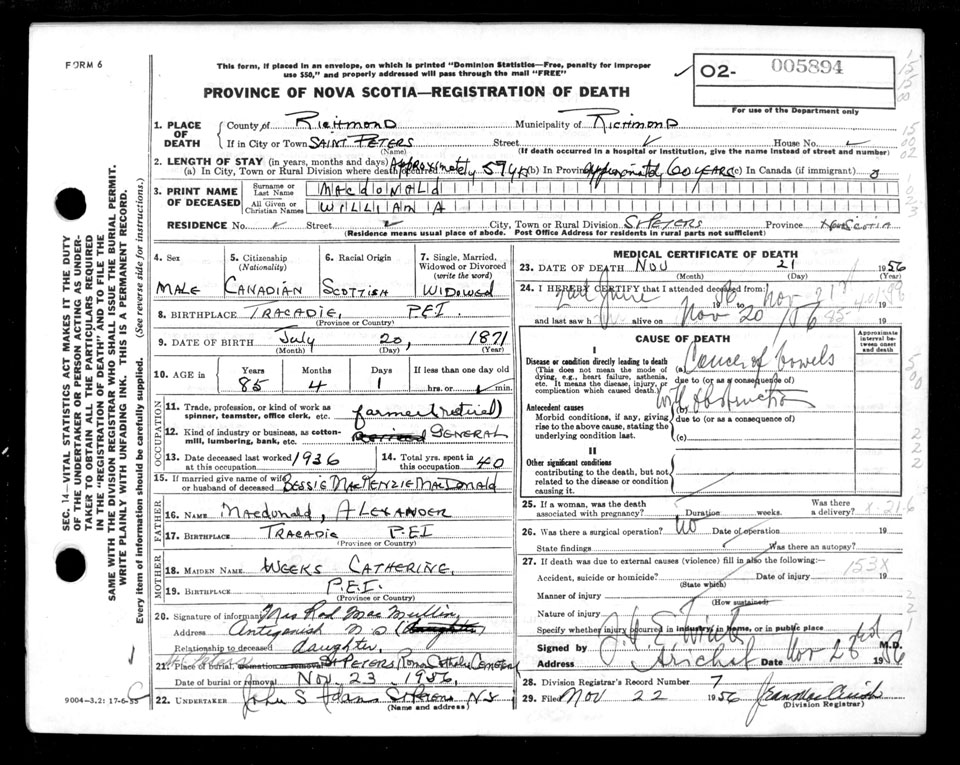 FORM 6
This form, if placed in an envelope, on which is printed "Dominion Statistics—Free, penalty for improper
use $50," and properly addressed will pass through the mail "FREE"
O2- 005894
For use of the Department only
PROVINCE OF NOVA SCOTIA—REGISTRATION OF DEATH
1. PLACE OF DEATH
County of RICHMOND Municipality of RICHMOND
If in City or Town SAINT PETERS Street House No.
(Name) (If death occurred in a hospital or institution, give the name instead of street and number)
2. LENGTH OF STAY (in years, months and days)
(a) In City, Town or Rural Division where death occurred Approximately 59 yrs (b) In Province Approximately 60 YEARS (c) In Canada (if immigrant)
3. PRINT NAME OF DECEASED
Surname or Last Name MACDONALD
All Given or Christian Names WILLIAM A
RESIDENCE No. Street City, Town or Rural Division ST PETERS Province Nova SCOTIA
(Residence means usual place of abode. Post Office Address for residents in rural parts not sufficient)
4. Sex MALE
5. Citizenship (Nationality) CANADIAN
6. Racial Origin SCOTTISH
7. Single, Married, Widowed or Divorced (write the word) WIDOWED
8. BIRTHPLACE TRACADIE, P.E.I.
(Province or Country)
9. DATE OF BIRTH July 20, 1871
(Month) (Day) (Year)
10. AGE in Years Months Days If less than one day
85 4 1 hrs. or min.
OCCUPATION
11. Trade, profession, or kind of work as spinner, teamster, office clerk, etc. farmer (retired)
12. Kind of industry or business, as cotton-mill, lumbering, bank, etc. GENERAL
13. Date deceased last worked at this occupation 1936
14. Total yrs. spent in this occupation 40
15. If married give name of wife or husband of deceased BESSIE MACKENZIE MACDONALD
FATHER
16. NAME Macdonald, ALEXANDER
17. BIRTHPLACE TRACADIE P.E.I
(Province or Country)
MOTHER
18. MAIDEN NAME WEEKS CATHERINE.
19. BIRTHPLACE P.E.I.
(Province or Country)
20. Signature of informant Mrs Rod MacMullin
Address Antigonish N S
Relationship to deceased daughter.
21. Place of burial, cremation or removal St PETERS Roman Catholic Cemetery
Date of burial or removal Nov. 23, 1956,
22. UNDERTAKER John S Adams St Peters NS
(Name and address)
MEDICAL CERTIFICATE OF DEATH
23. DATE OF DEATH Nov 21 1956
(Month) (Day) (Year)
24. I HEREBY CERTIFY that I attended deceased from:
June 1956 Nov 21
and last saw h alive on Nov 20 1956
CAUSE OF DEATH
Approximate interval between onset and death
I
Disease or condition directly leading to death
(This does not mean the mode of dying, e.g., heart failure, asthenia, etc. It means the disease, injury, or complication which caused death.)
(a) Cancer of bowels
due to (or as a consequence of)
Antecedent causes
Morbid conditions, if any, giving rise to the above cause, stating the underlying condition last.
(b) with obstruction
due to (or as a consequence of)
(c)
II
Other significant conditions
contributing to the death, but not related to the disease or condition causing it.
25. If a woman, was the death associated with pregnancy? Duration weeks. Was there a delivery?
26. Was there a surgical operation? No Date of operation 19
State findings Was there an autopsy?
27. If death was due to external causes (violence) fill in also the following:—
Accident, suicide or homicide? Date of injury 19
(State which)
153X
Manner of injury
(How sustained)
Nature of injury
Specify whether injury occurred in industry, in home, or in public place
Signed by M.D.
Address Arichat Date Nov 1956
28. Division Registrar's Record Number 7
29. Filed Nov 22 1956
(Division Registrar)
SEC. 14—VITAL STATISTICS ACT MAKES IT THE DUTY
OF THE UNDERTAKER OR PERSON ACTING AS UNDER-
TAKER TO OBTAIN ALL THE PARTICULARS REQUIRED
IN THE "REGISTRATION OF DEATH" AND TO FILE THE
SAME WITH THE DIVISION REGISTRAR WHO SHALL ISSUE THE BURIAL PERMIT.
WRITE PLAINLY WITH UNFADING INK. THIS IS A PERMANENT RECORD.
Every item of information should be carefully supplied. (See reverse side for instructions.)
9004-3.2: 17-6-55